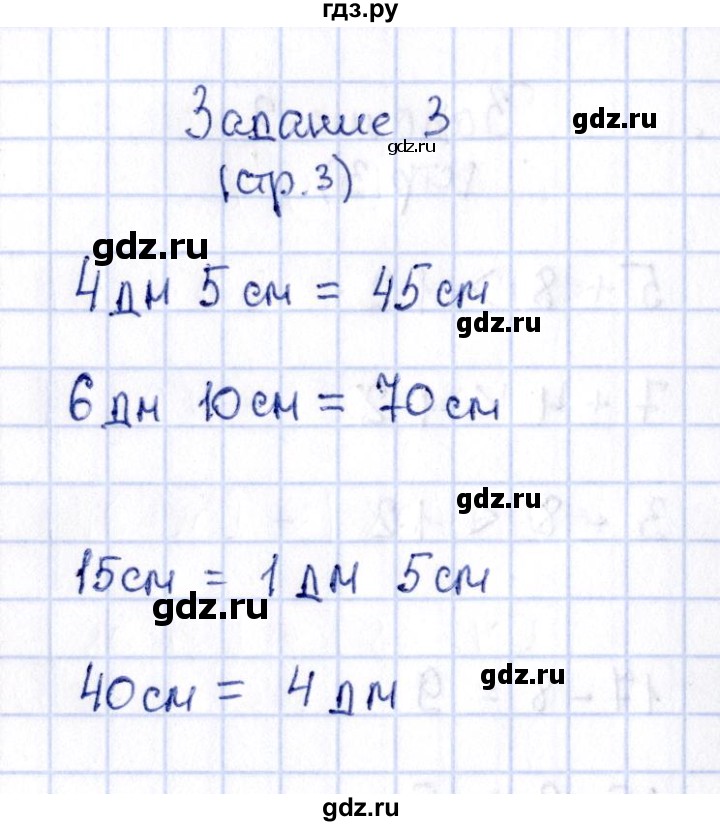 гдз.ру
Задание 3
gdz.ru
gdz.ru
(стр.3)
gdz.ru
4 дм 5 см = 45 см
gdz.ru
6 дм 10 см = 70 см
gdz.ru
15 см = 1 дм 5 см
gdz.ru
40 см = 4 дм
gdz.ru
gdz.ru